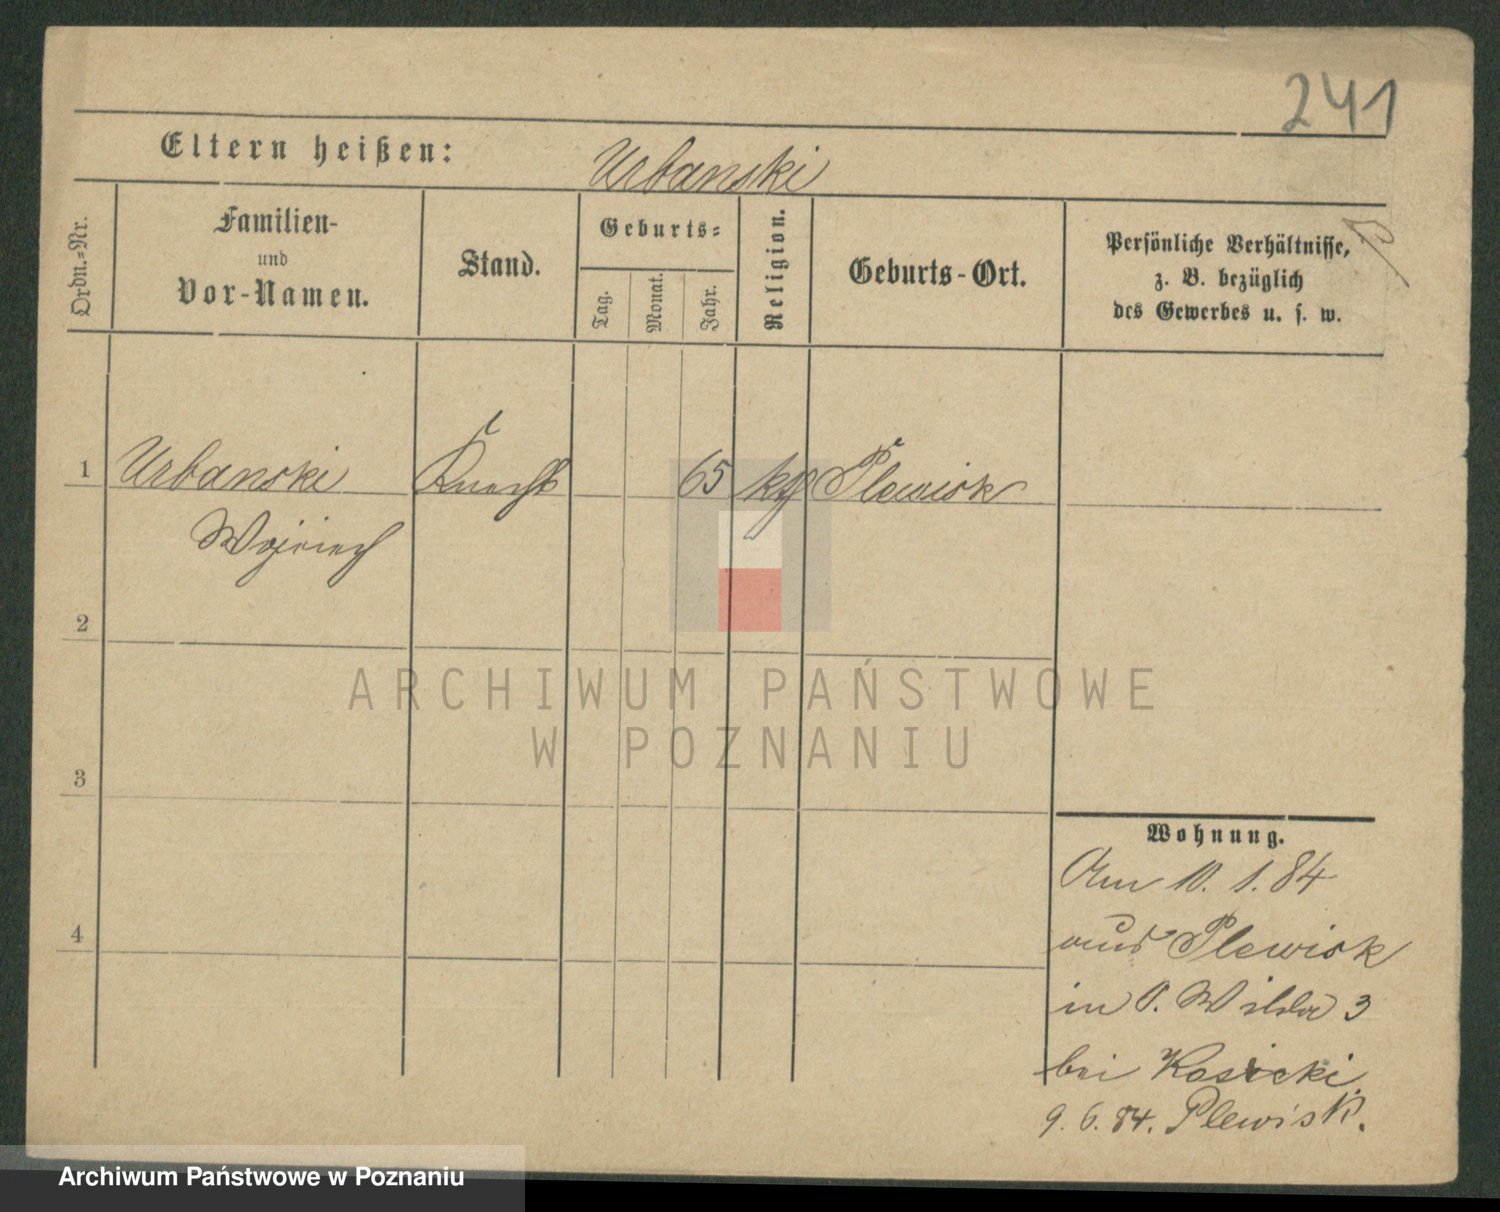 241
Eltern heißen: Urbanski
Ordn.=Nr.
Familien-
und
Vor-Namen.
Stand.
Geburts=
Tag.
Monat.
Jahr.
Religion.
Geburts-Ort.
Persönliche Verhältnisse,
z. B. bezüglich
des Gewerbes u. s. w.
1 Urbanski Knecht 65 kth Plewisk
Wojciech
2
3
4
Wohnung.
Am 10. 1. 84
aus Plewisk
in O. Wilda 3
bei Kosicki
9. 6. 84. Plewisk.
ARCHIWUM PAŃSTWOWE
W POZNANIU
Archiwum Państwowe w Poznaniu